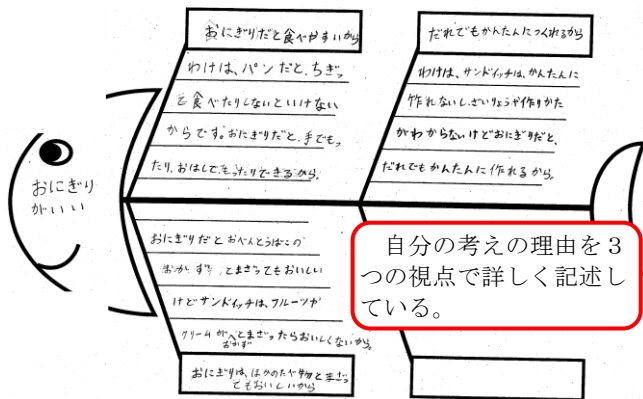 おにぎりだと食べやすいから
わけは、パンだと、ちぎっ
て食べたりしないといけない
からです。おにぎりだと、手でもっ
たり、おはしでもったりできるから。
だれでもかんたんにつくれるから
わけは、サンドイッチは、かんたんに
作れないしざいりょうや作りかた
がわからないけどおにぎりだと、
だれでもかんたんに作れるから。
おにぎり
がいい
おにぎりだとおべんとうばこの
おかずとまざってもおいしい
けどサンドイッチは、フルーツや
クリームがおかずとまざったらおいしくないから。
おにぎりは、ほかのたべ物とまざっ
てもおいしいから
自分の考えの理由を3
つの視点で詳しく記述し
ている。